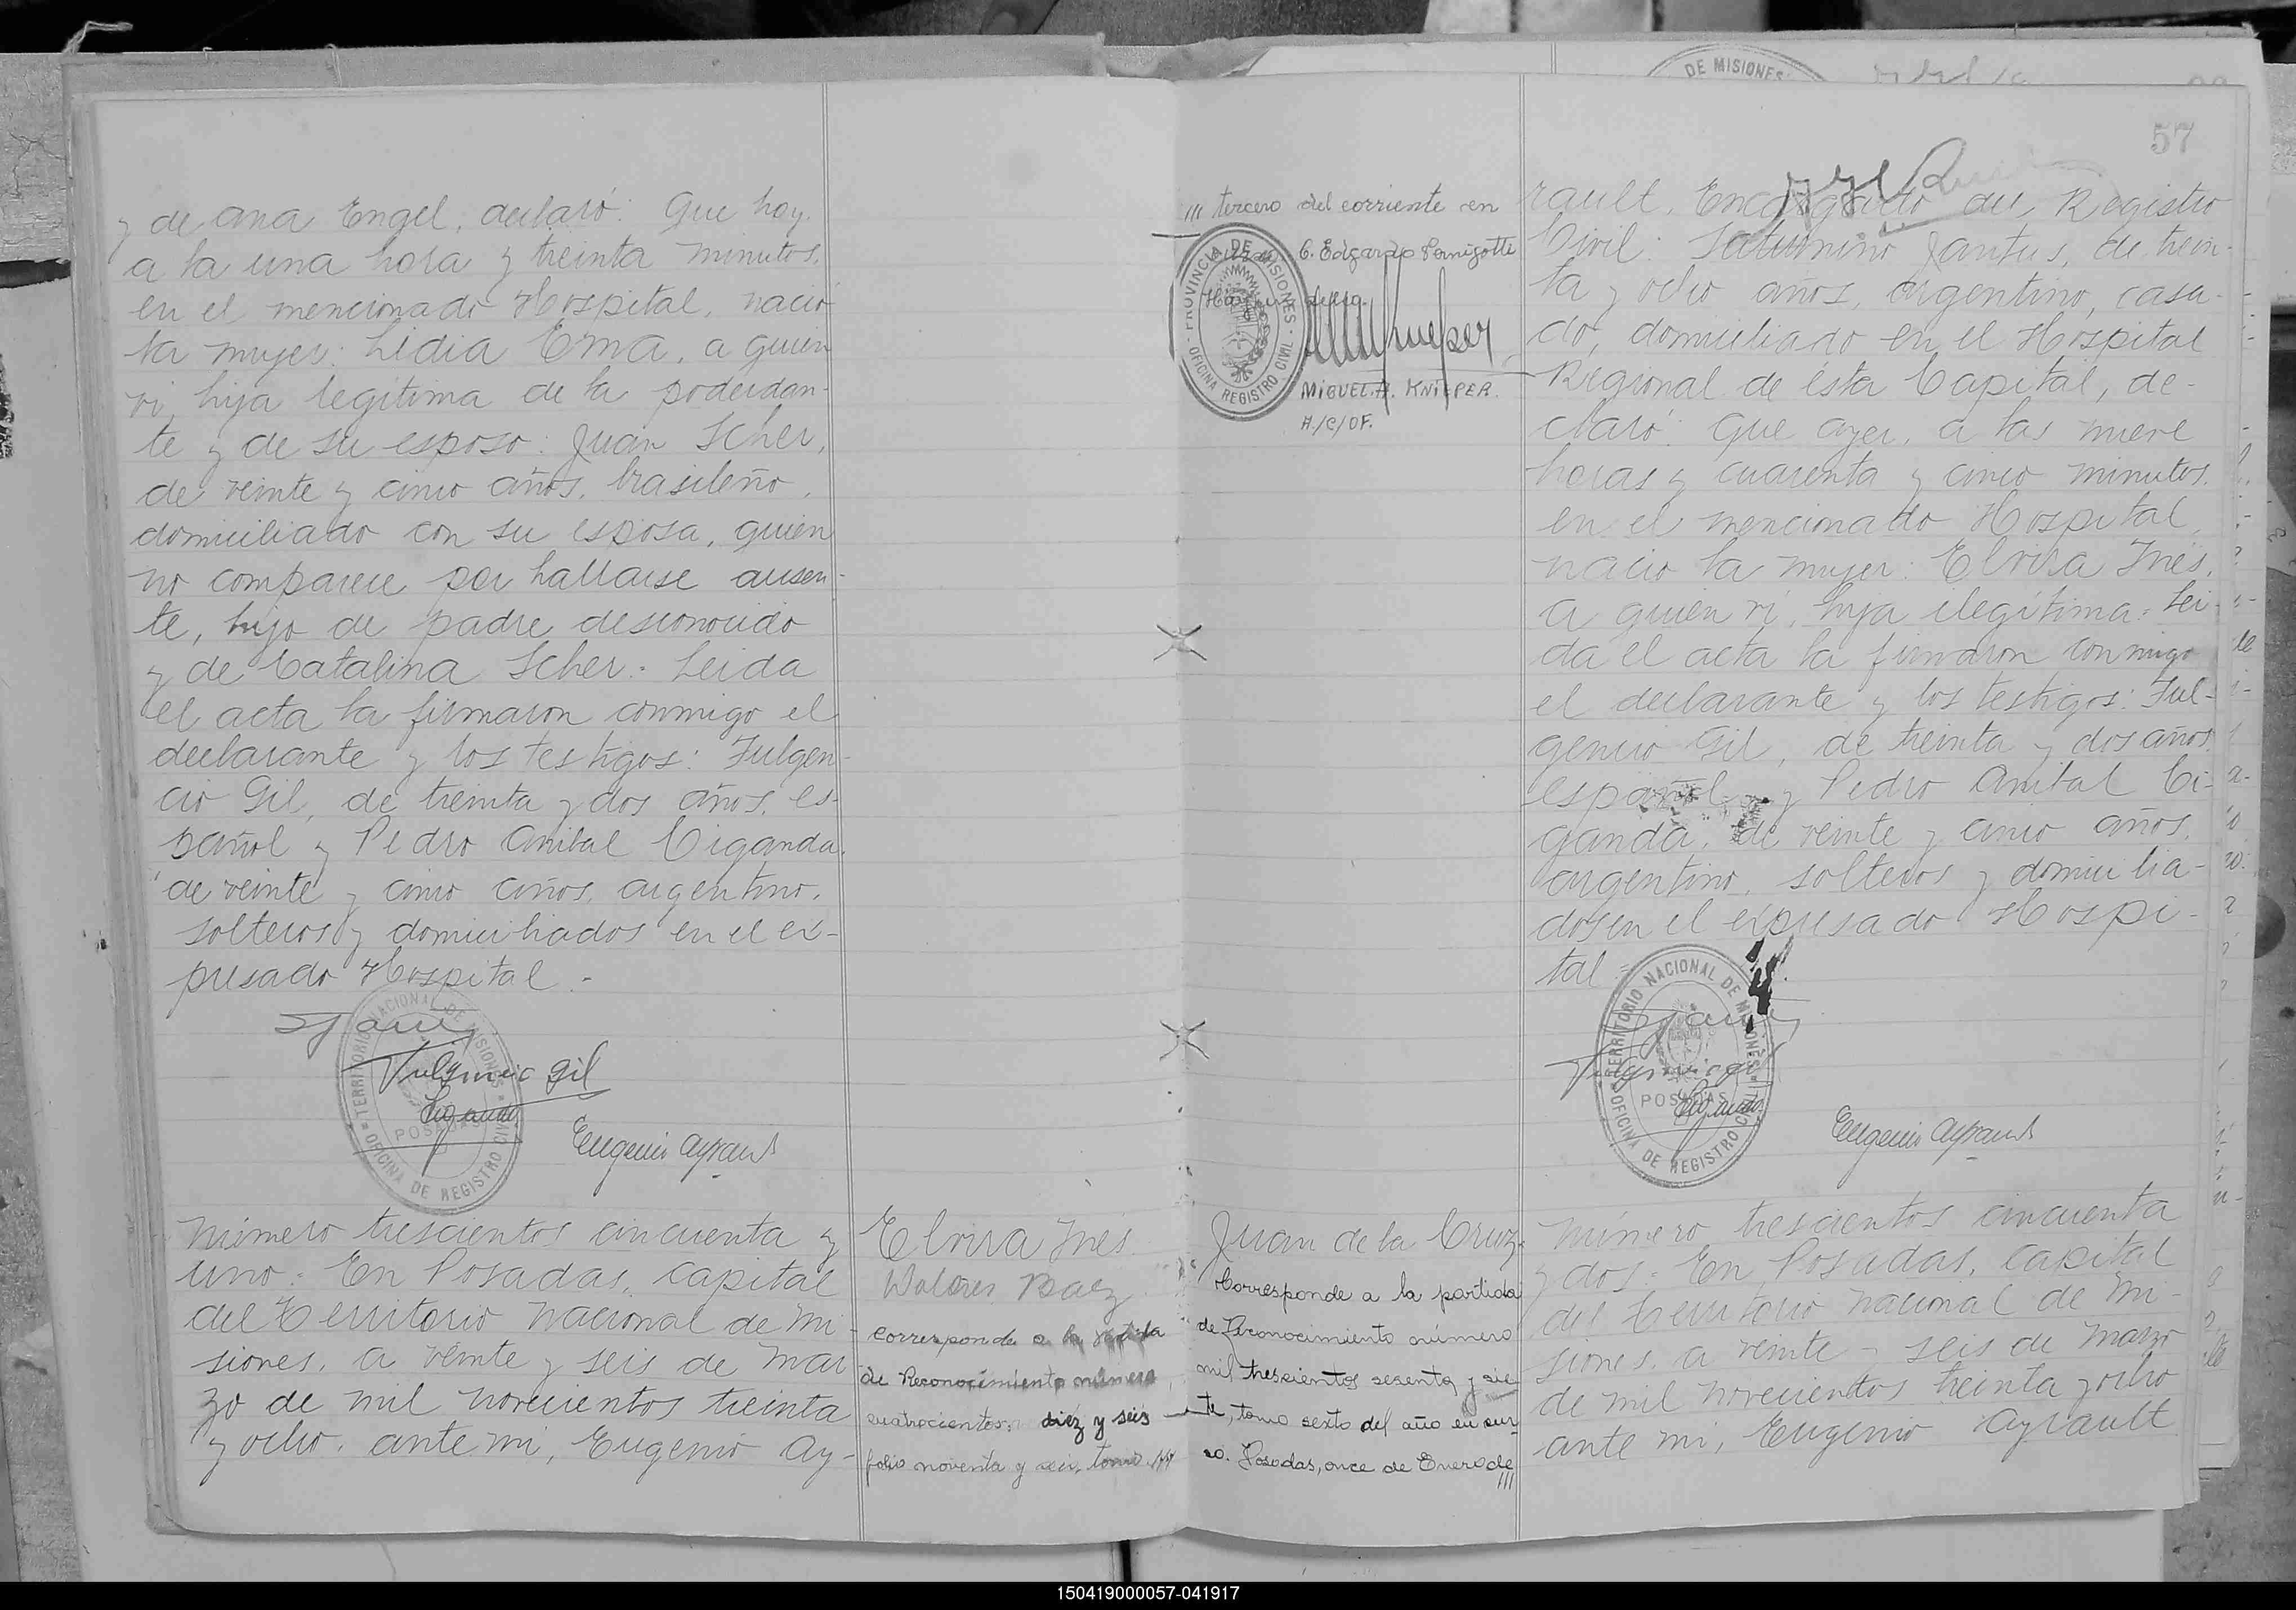 y de Ana Engel, declaró: Que hoy,
a la una hora y treinta minutos,
en el mencionado Hospital, nació
la mujer: Lidia Erna, a quien
vi, hija legítima de la poderdan-
te y de su esposo: Juan Scher,
de veinte y cinco años, brasileño,
domiciliado con su esposa, quien
no comparece por hallarse ausen-
te, hijo de padre desconocido
y de Catalina Scher: Leida
el acta la firmaron conmigo el
declarante y los testigos: Fulgen-
cio Gil, de treinta y dos años, es-
pañol y Pedro Anibal Ciganda,
de veinte y cinco años, argentino,
solteros y domiciliados en el ex-
presado Hospital.-
TERRITORIO NACIONAL DE MISIONES
POSADAS
OFICINA DE REGISTRO CIVIL
Fulgencio Gil
Ciganda
Eugenio Ayrault
Número trescientos cincuenta y
uno: En Posadas, capital
del Territorio Nacional de Mi-
siones, a veinte y seis de Mar-
zo de mil novecientos treinta
y ocho, ante mí, Eugenio Ay-
Elvira Inés
Dolores Baez
corresponde a la
de Reconocimiento número
cuatrocientos diez y seis
folio noventa y seis, tomo ///
/// tercero del corriente en
C. Edgardo Pernigotti
PROVINCIA DE MISIONES
OFICINA REGISTRO CIVIL
MIGUEL A. KNIEPER
A./C/OF.
Juan de la Cruz
Corresponde a la partida
de Reconocimiento número
mil trescientos sesenta y sie-
te, tomo sexto del año en cur-
so. Posadas, once de Enero de
///
DE MISIONES
57
rault, Encargado del Registro
Civil: Saturnino Jantus, de trein-
ta y ocho años, argentino, casa-
do, domiciliado en el Hospital
Regional de ésta Capital, de-
claró: Que ayer, a las nueve
horas y cuarenta y cinco minutos,
en el mencionado Hospital,
nació la mujer: Elvira Inés,
a quien vi, hija ilegítima: Lei-
da el acta la firmaron conmigo
el declarante y los testigos: Ful-
gencio Gil, de treinta y dos años,
español y Pedro Anibal Ci-
ganda, de veinte y cinco años,
argentino, solteros y domicilia-
dos en el expresado Hospi-
tal
TERRITORIO NACIONAL DE MISIONES
POSADAS
OFICINA DE REGISTRO CIVIL
Ciganda
Eugenio Ayrault
Número trescientos cincuenta
y dos: En Posadas, capital
del Territorio Nacional de Mi-
siones, a veinte y seis de Marzo
de mil novecientos treinta y ocho
ante mí, Eugenio Ayrault
150419000057-041917